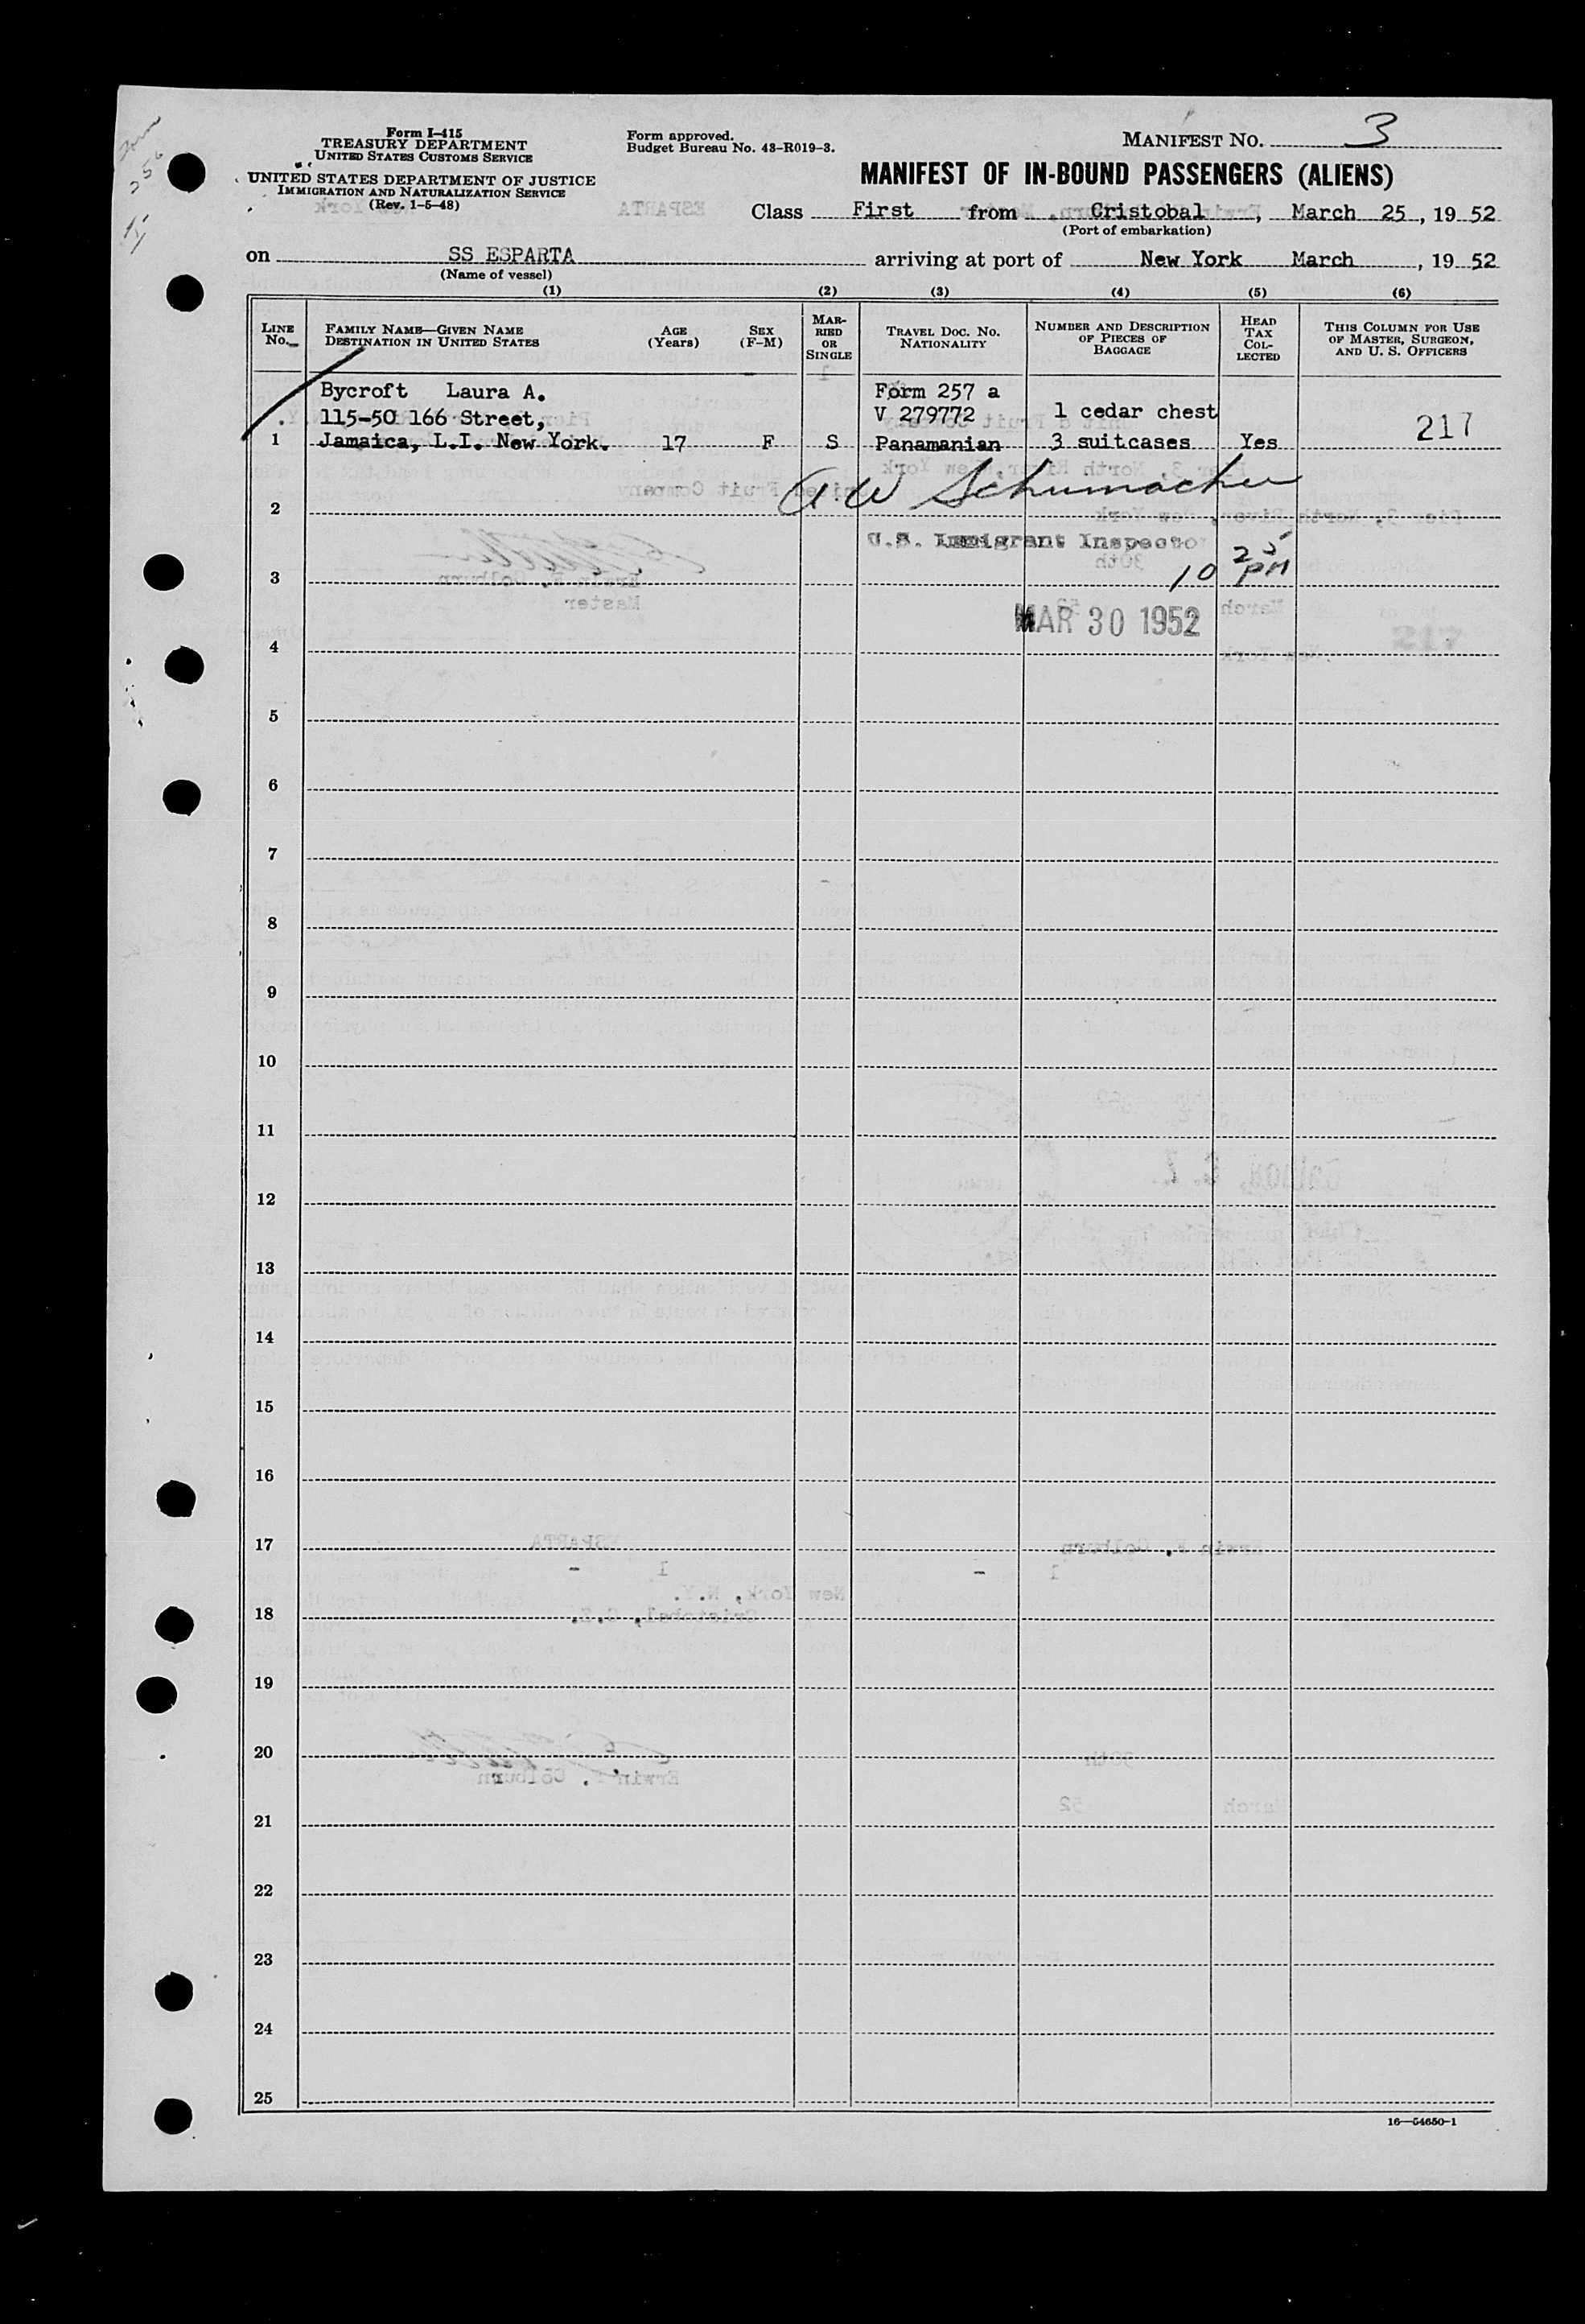 Form I-415
TREASURY DEPARTMENT
UNITED STATES CUSTOMS SERVICE
UNITED STATES DEPARTMENT OF JUSTICE
IMMIGRATION AND NATURALIZATION SERVICE
(Rev. 1-5-48)
Form approved.
Budget Bureau No. 43-R019-3.
MANIFEST NO. 3
MANIFEST OF IN-BOUND PASSENGERS (ALIENS)
Class First from Cristobal, March 25, 19 52
(Port of embarkation)
on SS ESPARTA arriving at port of New York March, 19 52
(Name of vessel)
(1) (2) (3) (4) (5) (6)
LINE No. FAMILY NAME—GIVEN NAME DESTINATION IN UNITED STATES AGE (Years) SEX (F-M) MARRIED OR SINGLE TRAVEL DOC. NO. NATIONALITY NUMBER AND DESCRIPTION OF PIECES OF BAGGAGE HEAD TAX COLLECTED THIS COLUMN FOR USE OF MASTER, SURGEON, AND U. S. OFFICERS
Bycroft Laura A. Form 257 a
115-50 166 Street, V 279772 1 cedar chest
1 Jamaica, L.I. New York. 17 F S Panamanian 3 suitcases Yes 217
A W Schumacher
2
U.S. Immigrant Inspecto
3 10 25 PM
MAR 30 1952
4
5
6
7
8
9
10
11
12
13
14
15
16
17
18
19
20
21
22
23
24
25
16—54650-1